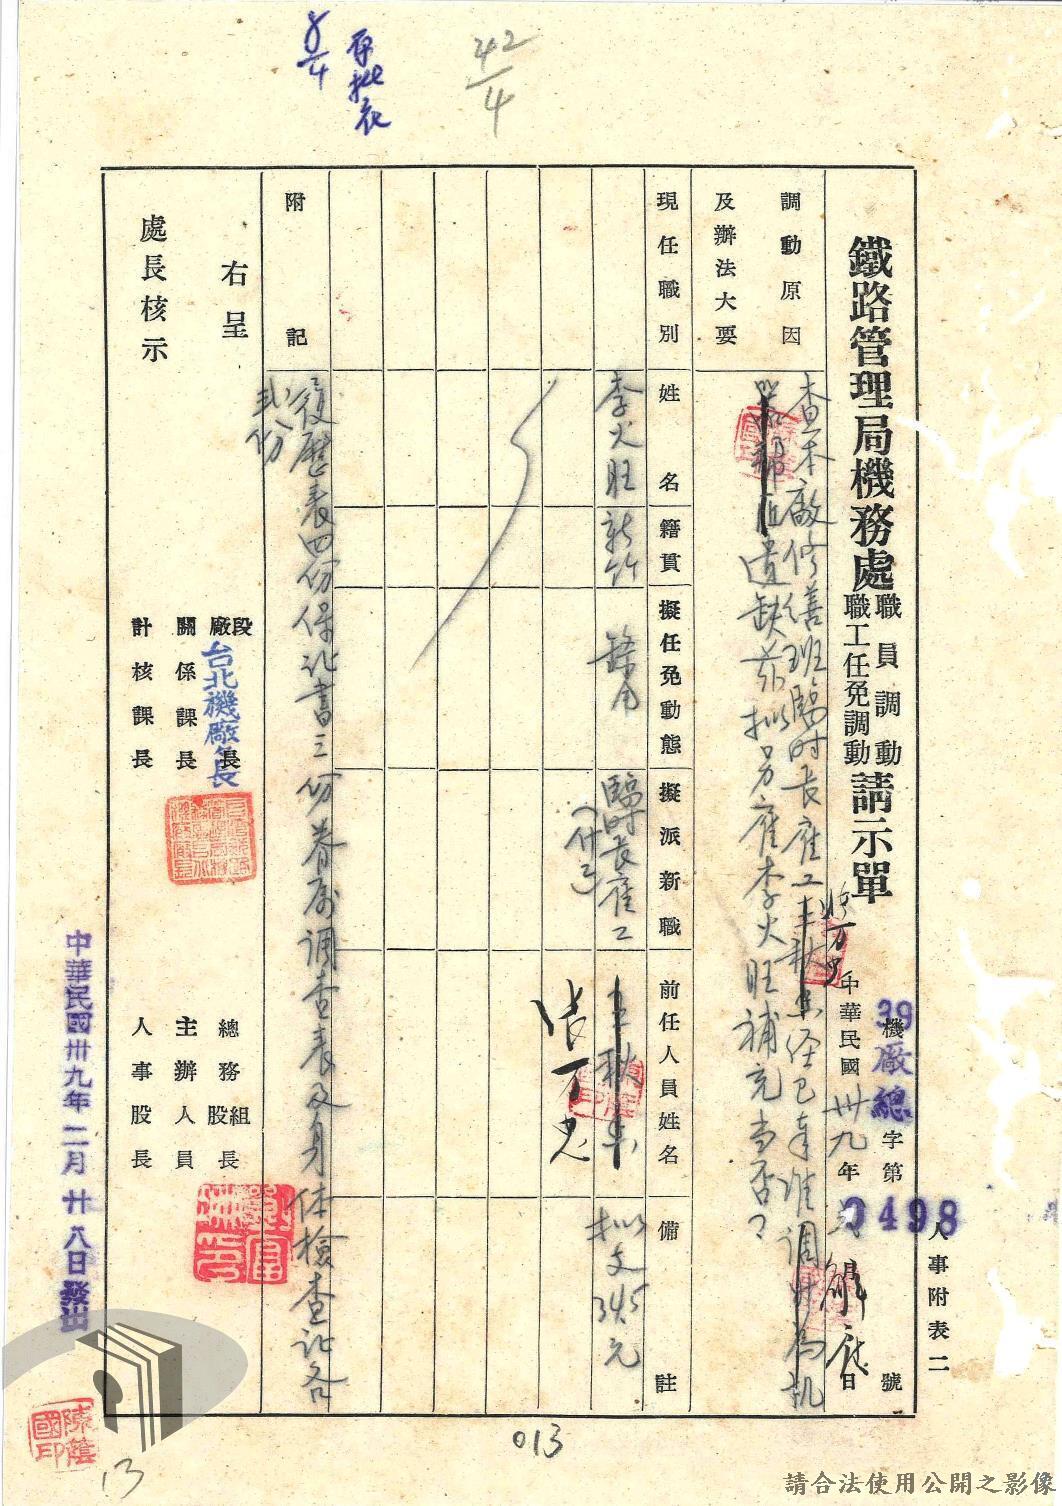 人事附表二
鐵路管理局機務處職員調動職工任免調動請示單
39機廠總字第0498號
中華民國卅九年 月 日
調動原因及辦法大要
查本廠修繕班臨時長雇工王秋泉經已奉准調升為
遺缺茲擬另雇李火旺補充當否？
張万忠
解雇
現任職別
姓名
籍貫
擬任免動態
擬派新職
前任人員姓名
備註
李火旺
新竹
錄用
臨時長雇工
王秋泉
張万忠
擬支345元
附記
履歷表四份保証書三份眷屬調查表及身体檢查証各
弍份
右呈
處長核示
段廠長
台北機廠廠長
關係課長
計核課長
總務股組長
主辦人員
人事股長
中華民國卅九年二月廿八日發出
陳蔭國印
8/4
42/4
013
13
請合法使用公開之影像